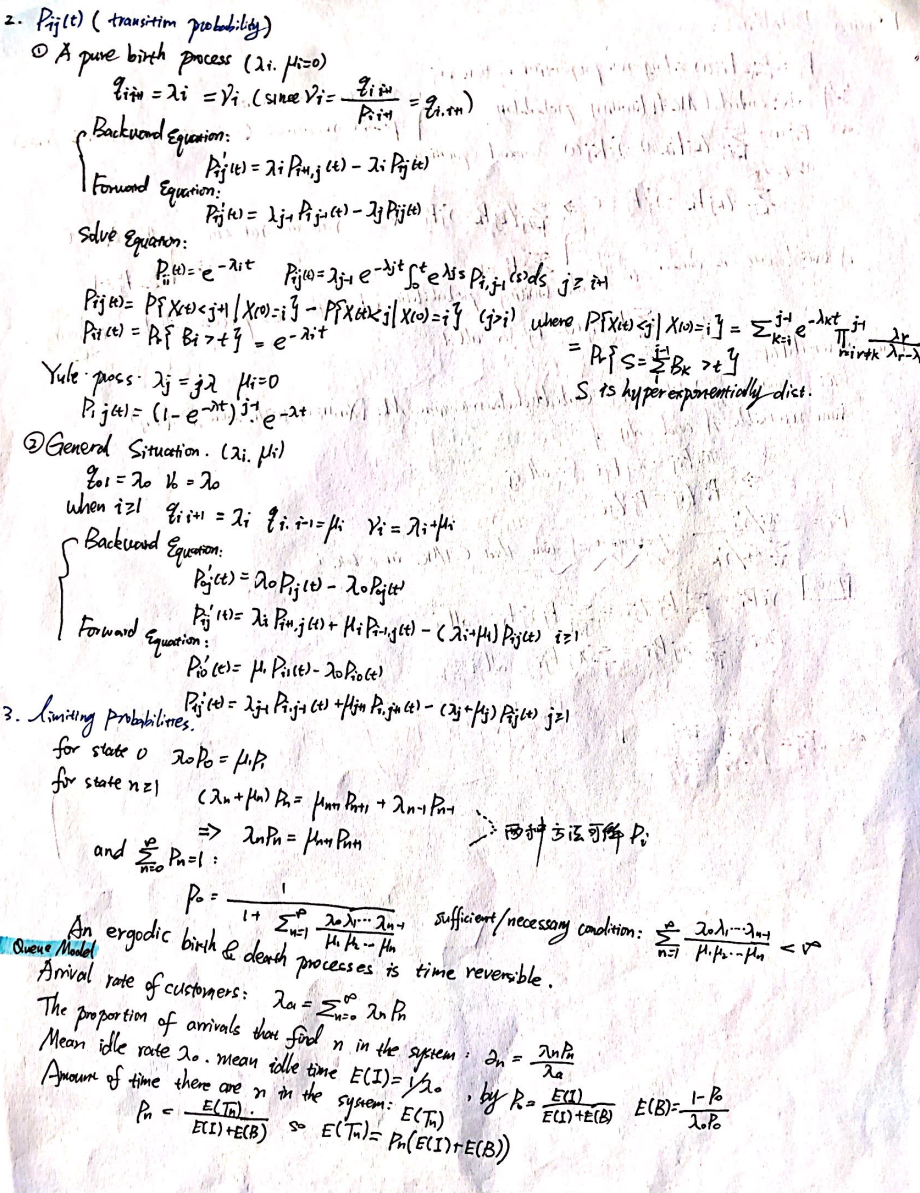 2. Pij(t) (transition probability)
① A pure birth process (λi. μi=0)
qi,i+1 = λi = νi. (since νi = qi,i+1 / Pi,i+1 = qi,i+1)
Backward Equation:
Pij'(t) = λi Pi+1,j(t) - λi Pij(t)
Forward Equation:
Pij'(t) = λj-1 Pi,j-1(t) - λj Pij(t)
Solve Equation:
Pii(t) = e^{-λit} Pij(t) = λj-1 e^{-λjt} ∫_0^t e^{λjs} Pi,j-1(s)ds j ≥ i+1
Pij(t) = P{X(t)<j+1 | X(0)=i} - P{X(t)<j | X(0)=i} (j>i) where P{X(t)<j | X(0)=i} = Σ_{k=i}^{j-1} e^{-λkt} Π_{r≠k}^{j-1} λr / λr-λ
Pii(t) = Pr{Bi>t} = e^{-λit}
= Pr{S = Σ^{j-1} Bk > t}
S is hyperexponentially dist.
Yule process. λj = jλ μi=0
P1j(t) = (1-e^{-λt})^{j-1} e^{-λt}
② General Situation. (λi. μi)
q01 = λ0 ν0 = λ0
when i≥1 qi,i+1 = λi qi,i-1 = μi νi = λi+μi
Backward Equation:
P0j'(t) = λ0 P1j(t) - λ0 P0j(t)
Pij'(t) = λi Pi+1,j(t) + μi Pi-1,j(t) - (λi+μi) Pij(t) i≥1
Forward Equation:
Pi0'(t) = μ1 Pi1(t) - λ0 Pi0(t)
Pij'(t) = λj-1 Pi,j-1(t) + μj+1 Pi,j+1(t) - (λj+μj) Pij(t) j≥1
3. limiting probabilities.
for state 0 λ0P0 = μ1P1
for state n≥1
(λn+μn) Pn = μn+1 Pn+1 + λn-1 Pn-1
=> λnPn = μn+1 Pn+1
两种方法可解 Pi
and Σ_{n=0}^∞ Pn=1 :
P0 = 1 / (1 + Σ_{n=1}^∞ λ0λ1···λn-1 / μ1μ2···μn) sufficient/necessary condition: Σ_{n=1}^∞ λ0λ1···λn-1 / μ1μ2···μn < ∞
An ergodic birth & death processes is time reversible.
Queue Model
Arrival rate of customers: λa = Σ_{n=0}^∞ λnPn
The proportion of arrivals that find n in the system: an = λnPn / λa
Mean idle rate λ0. mean idle time E(I) = 1/λ0. by P0 = E(I) / E(I)+E(B) E(B) = 1-P0 / λ0P0
Amount of time there are n in the system: E(Tn)
Pn = E(Tn) / E(I)+E(B) so E(Tn) = Pn(E(I)+E(B))